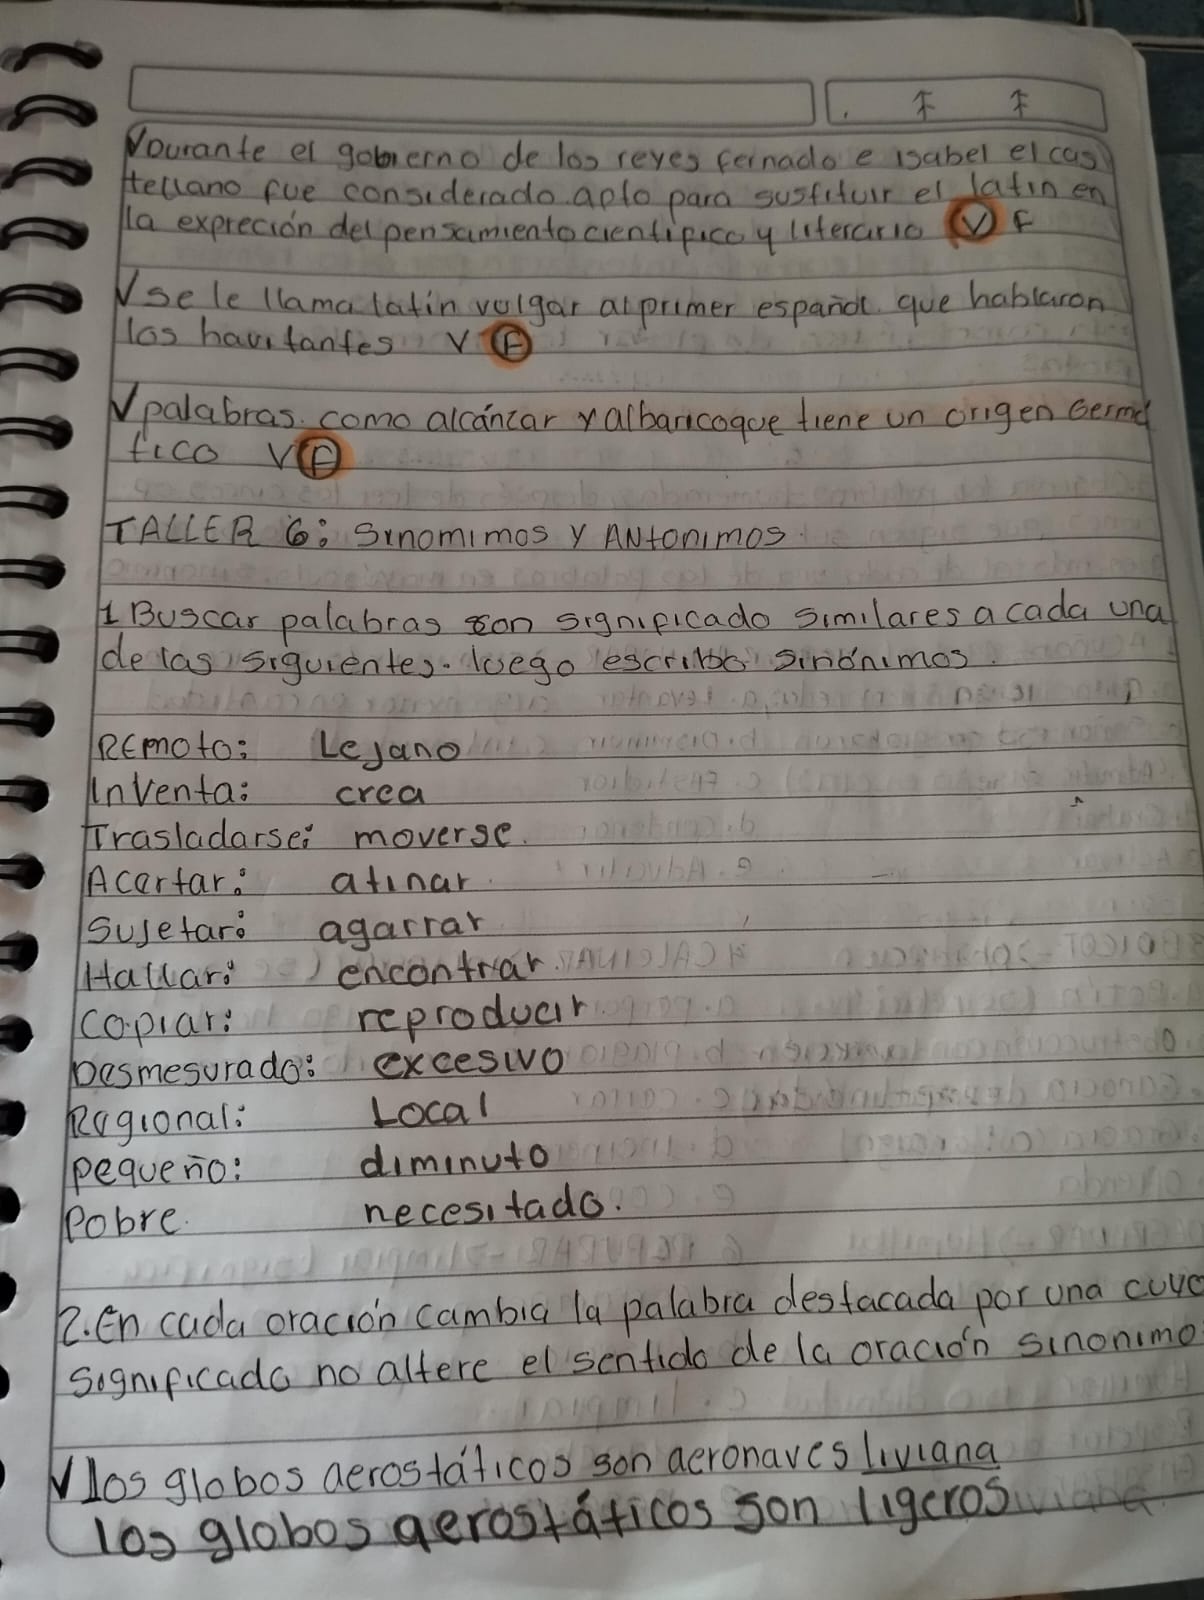 Vourante el gobierno de los reyes fernado e isabel el cas
tellano fue considerado apto para sustituir el latin en
la expreción del pensamiento cientifico y literario V F
V se le llama latin vulgar al primer español que hablaron
los havitantes V F
V palabras como alcánzar y albaricoque tiene un origen Germá
tico V F
TALLER 6: Sinomimos Y ANtonimos
1 Buscar palabras con significado similares a cada una
de las siguientes. luego escribo sinónimos.
REmoto: Lejano
Inventa: crea
Trasladarse: moverse.
Acertar: atinar.
Sujetar: agarrar
Hallar: encontrar
Copiar: reproducir
Desmesurado: excesivo
Regional: Local
pequeño: diminuto
Pobre. necesitado.
2. En cada oración cambia la palabra destacada por una cuyo
significado no altere el sentido de la oración sinonimo
V los globos aerostáticos son aeronaves liviana
los globos aerostáticos son ligeros